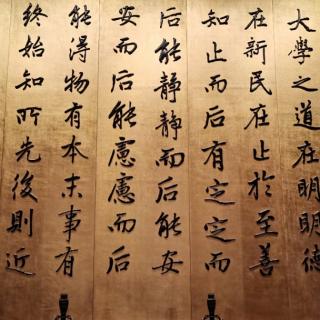 大學之道在明明德
在新民在止於至善
知止而后有定定而
后能静静而后能安
安而后能慮慮而后
能得物有本末事有
終始知所先後則近